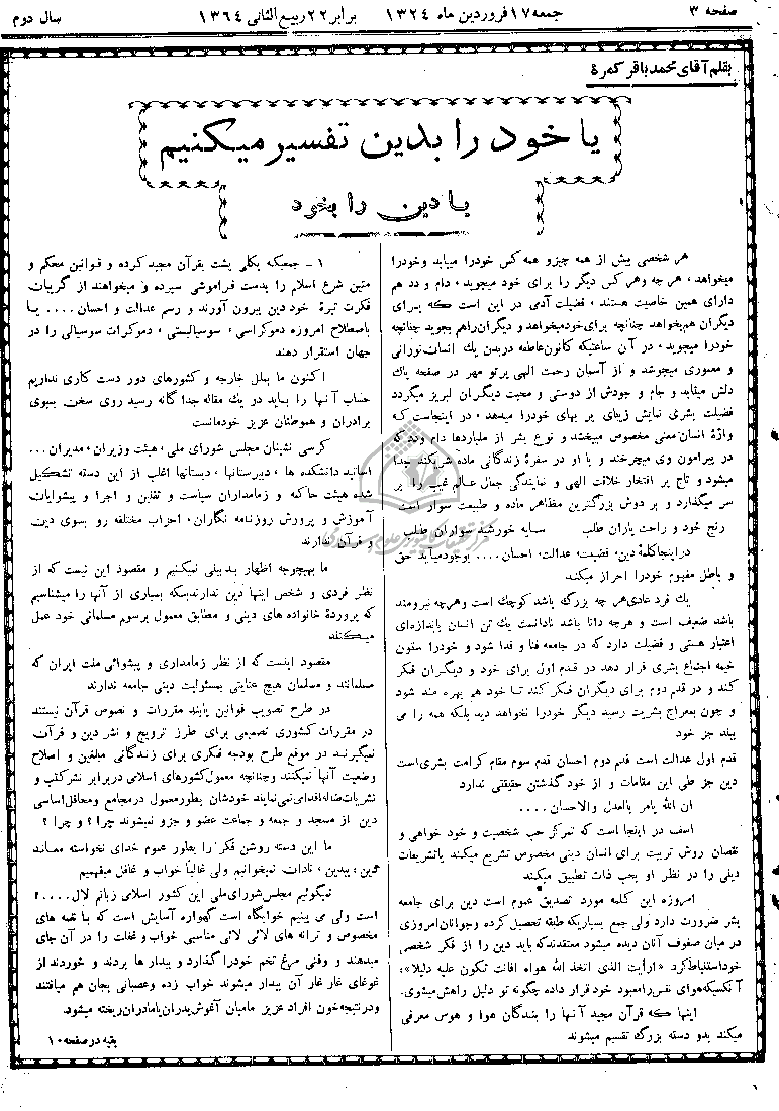 صفحه ۳
جمعه ۱۷ فروردین ماه ۱۳۲۴ برابر ۲۲ ربیع الثانی ۱۳۶۴
سال دوم
بقلم آقای محمد باقر کمرهٔ
یا خود را بدین تفسیر میکنیم
یا دین را بخود
هر شخصی بیش از همه چیزو همه کس خودرا میابد وخودرا
میخواهد، هرچه وهر کس دیگر را برای خود میجوید، دام و دد هم
دارای همین خاصیت هستند، فضیلت آدمی در این است که برای
دیگران هم بخواهد چنانچه برای خود میخواهد و دیگران راهم بجوید چنانچه
خودرا میجوید، در آن ساعتیکه کانون عاطفه دربدن یك انسان نورانی
و معموری میجوشد و از آسمان رحمت الهی پرتو مهر در صفحه پاك
دلش میتابد و جام و جودش از دوستی و محبت دیگران لبریز میگردد
فضیلت بشری نمایش زیبای پر بهای خودرا میدهد، در اینجاست که
واژهٔ انسان معنی مخصوص میبخشد و نوع بشر از ملیاردها دام وددکه
در پیرامون وی میچرخند و با او در سفرهٔ زندگانی ماده شریکند جدا
میشود و تاج پر افتخار خلافت الهی و نمایندگی جمال عالم غیب را بر
سر میگذارد و بر دوش بزرگترین مظاهر ماده و طبیعت سوار است
رنج خود و راحت یاران طلب سایه خورشید سواران طلب
دراینجا کلمهٔ دین، فضیلت، عدالت، احسان .... بوجود میاید حق
و باطل مفهوم خودرا احراز میکند
یك فرد عادی هر چه بزرگ باشد کوچك است وهرچه نیرومند
باشد ضعیف است و هرچه دانا باشد نادانست یك تن انسان باندازه‌ای
اعتبار هستی و فضیلت دارد که در جامعه فنا و فدا شود و خودرا ستون
خیمه اجتماع بشری قرار دهد در قدم اول برای خود و دیگران فکر
کند و در قدم دوم برای دیگران فکر کند تا خود هم بهره مند شود
و چون بمعراج بشریت رسید دیگر خودرا نخواهد دید بلکه همه را می
بیند جز خود
قدم اول عدالت است قدم دوم احسان قدم سوم مقام کرامت بشری است
دین جز طی این مقامات و از خود گذشتن حقیقتی ندارد
ان الله یامر بالعدل والاحسان ....
اسف در اینجا است که تمرکز حب شخصیت و خود خواهی و
نقصان روش تربیت برای انسان دینی مخصوص تشریع میکند یاتشریعات
دینی را در نظر او بحب ذات تطبیق میکند
امروزه این کلمه مورد تصدیق عموم است دین برای جامعه
بشر ضرورت دارد ولی جمع بسیاریکه طبقه تحصیل کرده وجوانان امروزی
در میان صفوف آنان دیده میشود معتقدند که باید دین را از فکر شخصی
خود استنباط کرد «ارأیت الذی اتخذ الله هواه افانت تکون علیه دلیلا»،
آنکسیکه هوای نفس را معبود خود قرار داده چگونه تو دلیل راهش میشوی.
اینها که قرآن مجید آنها را بندگان هوا و هوس معرفی
میکند بدو دسته بزرگ تقسیم میشوند
۱ـ جمعیکه یکلی پشت بقرآن مجید کرده و قوانین محکم و
متین شرع اسلام را بدست فراموشی سپرده و میخواهند از گریبان
فکرت تیرهٔ خود دین بیرون آورند و رسم عدالت و احسان .... یا
باصطلاح امروزه دموکراسی، سوسیالیستی، دموکرات سوسیالی را در
جهان استقرار دهند
اکنون ما بملل خارجه و کشورهای دور دست کاری نداریم
حساب آنها را باید در یك مقاله جداگانه رسید روی سخن بسوی
برادران و هموطنان عزیز خودمانست
کرسی نشینان مجلس شورای ملی، هیئت وزیران، مدیران ...
اساتید دانشکده ها، دبیرستانها، دبستانها اغلب از این دسته تشکیل
شده هیئت حاکمه و زمامداران سیاست و تقنین و اجرا و پیشوایان
آموزش و پرورش روزنامه نگاران، احزاب مختلفه رو بسوی دین
و قرآن ندارند
ما بهیچوجه اظهار بدبینی نمیکنیم و مقصود این نیست که از
نظر فردی و شخص اینها دین ندارند بلکه بسیاری از آنها را میشناسیم
که پروردهٔ خانواده های دینی و مطابق معمول برسوم مسلمانی خود عمل
میکنند
مقصود اینست که از نظر زمامداری و پیشوائی ملت ایران که
مسلمانند و مسلمان هیچ عنایتی بمسئولیت دینی جامعه ندارند
در طرح تصویب قوانین پابند مقررات و نصوص قرآن نیستند
در مقررات کشوری تصمیمی برای طرز ترویج و نشر دین و قرآن
نمیگیرند در موقع طرح بودجه فکری برای زندگانی مبلغین و اصلاح
وضعیت آنها نمیکنند وچنانچه معمول کشورهای اسلامی دربرابر نشر کتب و
نشریات ضاله اقدامی نمی نمایند خودشان بطور معمول در مجامع ومحافل اساسی
دین از مسجد و جمعه و جماعت عضو و جزو نمیشوند چرا؟ و چرا؟
ما این دسته روشن فکر را بطور عموم خدای نخواسته معاند
دین، بیدین، نادان، نمیخوانیم ولی غالباً خواب و غافل میفهمیم
نمیگوئیم مجلس شورای ملی این کشور اسلامی زبانم لال ....؟
است ولی می بینیم خوابگاه است گهواره آسایش است که با نغمه های
مخصوص و ترانه های لائی لائی مناسبی خواب و غفلت را در آن جای
میدهند و وقتی مرغ تخم خودرا گذارد و بیدار ها بردند و خوردند از
غوغای غار غار آن بیدار میشوند خواب زده وعصبانی بجان هم میافتند
ودرنتیجه خون افراد عزیز مامیان آغوش پدران یامادران ریخته میشود.
بقیه در صفحه ۱۰